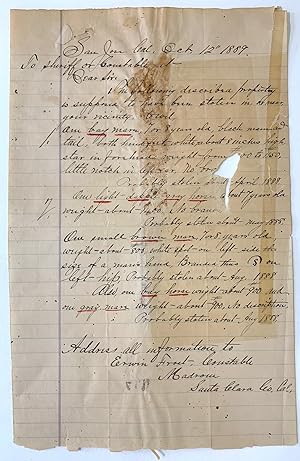 San Jose Cal. Oct 12" 1889.
To Sheriff or Constable at
Dear Sir
The following described property
is supposed to have been stolen in or near
your vicinity
One bay mare, 7 or 8 years old, black mane and
tail, both hind feet white, about 8 inches high
star in forehead weight from 900 to
little notch in left ear. No
Probably stolen about April 1888.
One light gray horse about 7 years old
weight about No brand
Probably stolen about May 1888.
One small brown mare 7 or 8 years old
weight about 800, white spot on left side the
size of a man's hand Branded thus (S) on
left Probably stolen about Aug. 1888
Also, one bay horse weight about 900 and
one gray mare weight about 900, No description,
Probably stolen about Aug 1888.
Address all information to
Erwin Frost Constable
Madrone
Santa Clara Co, Cal,